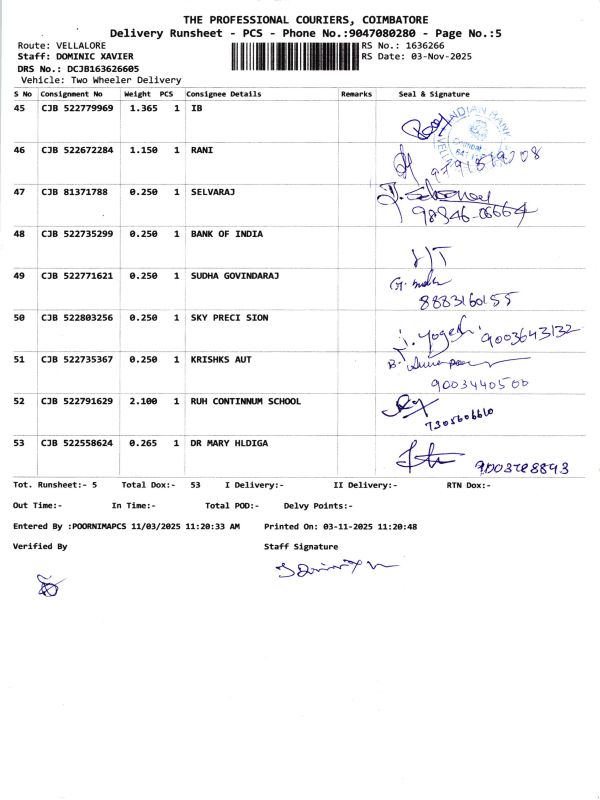 THE PROFESSIONAL COURIERS, COIMBATORE
Delivery Runsheet - PCS - Phone No.:9047080280 - Page No.:5
Route: VELLALORE RS No.: 1636266
Staff: DOMINIC XAVIER RS Date: 03-Nov-2025
DRS No.: DCJB163626605
Vehicle: Two Wheeler Delivery
S No Consignment No Weight PCS Consignee Details Remarks Seal & Signature
45 CJB 522779969 1.365 1 IB
INDIAN BANK
46 CJB 522672284 1.150 1 RANI
47 CJB 81371788 0.250 1 SELVARAJ
98946-06664
48 CJB 522735299 0.250 1 BANK OF INDIA
49 CJB 522771621 0.250 1 SUDHA GOVINDARAJ
8883160155
50 CJB 522803256 0.250 1 SKY PRECI SION
J. Yogesh 9003643132
51 CJB 522735367 0.250 1 KRISHKS AUT
9003440500
52 CJB 522791629 2.100 1 RUH CONTINNUM SCHOOL
7305606610
53 CJB 522558624 0.265 1 DR MARY HLDIGA
Tot. Runsheet:- 5 Total Dox:- 53 I Delivery:- II Delivery:- RTN Dox:-
Out Time:- In Time:- Total POD:- Delvy Points:-
Entered By :POORNIMAPCS 11/03/2025 11:20:33 AM Printed On: 03-11-2025 11:20:48
Verified By Staff Signature